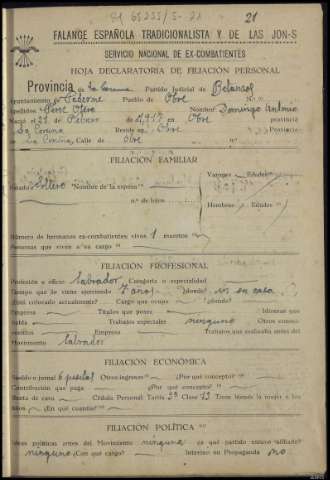 21
FALANGE ESPAÑOLA TRADICIONALISTA Y DE LAS JON-S
SERVICIO NACIONAL DE EX-COMBATIENTES
HOJA DECLARATORIA DE FILIACIÓN PERSONAL
Provincia de La Coruña Partido Judicial de Betanzos
Ayuntamiento de Paderne Pueblo de Obre N.º
Apellidos Nombre Domingo Antonio
Nació el 21 de Febrero de 1917 en Obre provincia
La Coruña Reside en Obre Provincia
La Coruña Calle de Obre
FILIACIÓN FAMILIAR
Estado soltero Nombre de la esposa Varones Edades
n.º de hijos Hembras Edades
Número de hermanos ex-combatientes vivos 1 muertos
Personas que viven a su cargo
FILIACIÓN PROFESIONAL
Profesión u oficio labrador Categoría o especialidad
Tiempo que lo viene ejerciendo 7 años ¿dónde? en casa
Está colocado actualmente? Cargo que ocupa ¿dónde?
Empresa Títulos que posee Idiomas que
habla Trabajos especiales ninguno Otros conoci-
mientos Empresa Trabajos que realizaba antes del
Movimiento labrador
FILIACIÓN ECONÓMICA
Sueldo o jornal 6 pesetas Otros ingresos ¿Por qué concepto?
Contribución que paga ¿Por qué concepto?
Renta de casa Cédula Personal Tarifa 3ª Clase 13 Tiene bienes la mujer o los
hijos ¿En qué cuantía?
FILIACIÓN POLÍTICA
Ideas políticas antes del Movimiento ninguna en qué partido estuvo afiliado?
ninguno ¿Con qué cargo? Intervino en Propaganda no